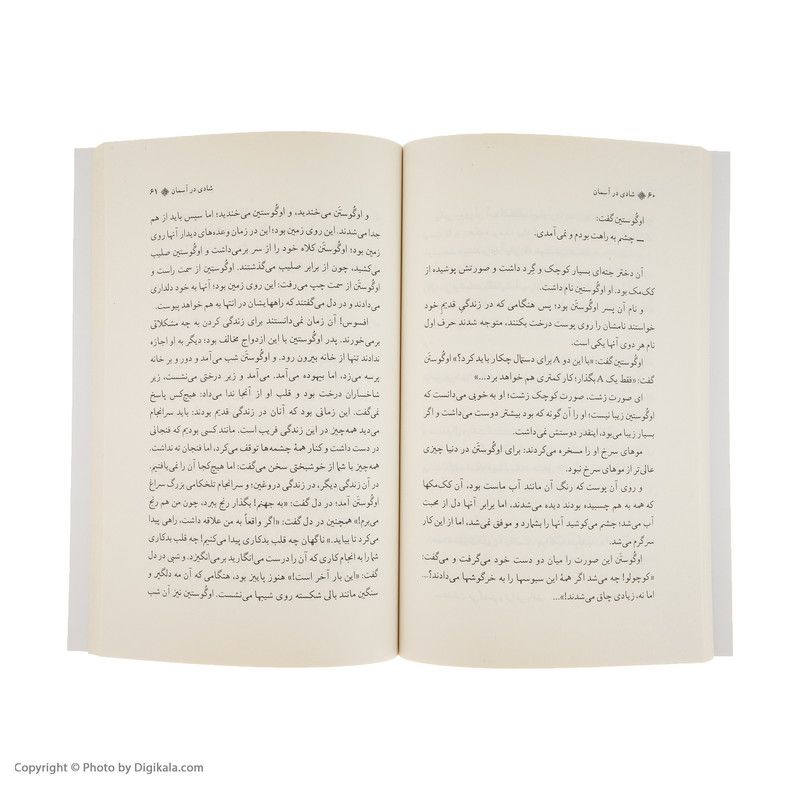 ۶۰ شادی در آسمان
اوگوستین گفت:
ــ چشم به راهت بودم و نمی‌آمدی.
آن دختر جثه‌ای بسیار کوچک و گِرد داشت و صورتش پوشیده از
کک‌مک بود. او اوگوستین نام داشت.
و نام آن پسر اوگوستَن بود؛ پس هنگامی که در زندگیِ قدیمِ خود
خواستند نامشان را روی پوست درخت بکنند، متوجه شدند حرف اول
نام هر دوی آنها یکی است.
اوگوستین گفت: «با این دو A برای دستمال چکار باید کرد؟» اوگوستَن
گفت: «فقط یک A بگذار؛ کار کمتری هم خواهد برد...»
ای صورت زشت، صورت کوچک زشت؛ او به خوبی می‌دانست که
اوگوستین زیبا نیست؛ او را آن گونه که بود بیشتر دوست می‌داشت و اگر
بسیار زیبا می‌بود، اینقدر دوستش نمی‌داشت.
موهای سرخ او را مسخره می‌کردند: برای اوگوستَن در دنیا چیزی
عالی‌تر از موهای سرخ نبود.
و روی آن پوست که رنگ آن مانند آب ماست بود، آن کک‌مکها
که همه به هم چسبیده بودند دیده می‌شدند، اما برابر آنها دل از محبت
آب می‌شد؛ چشم می‌کوشید آنها را بشمارد و موفق نمی‌شد، اما از این کار
سرگرم می‌شد.
اوگوستَن این صورت را میان دو دست خود می‌گرفت و می‌گفت:
«کوچولو! چه می‌شد اگر همهٔ این سبوسها را به خرگوشها می‌دادند؟...
اما نه، زیادی چاق می‌شدند!»...
شادی در آسمان ۶۱
و اوگوستَن می‌خندید، و اوگوستین می‌خندید؛ اما سپس باید از هم
جدا می‌شدند. این روی زمین بود؛ این در زمان وعده‌های دیدار آنها روی
زمین بود؛ اوگوستَن کلاه خود را از سر برمی‌داشت و اوگوستین صلیب
می‌کشید، چون از برابر صلیب می‌گذشتند. اوگوستین از سمت راست و
اوگوستَن از سمت چپ می‌رفت؛ این روی زمین بود؛ آنها به خود دلداری
می‌دادند و در دل می‌گفتند که راههایشان در انتها به هم خواهد پیوست.
افسوس! آن زمان نمی‌دانستند برای زندگی کردن به چه مشکلاتی
برمی‌خورند. پدر اوگوستین با این ازدواج مخالف بود؛ دیگر به او اجازه
ندادند تنها از خانه بیرون رود. و اوگوستَن شب می‌آمد و دور و بر خانه
پرسه می‌زد، اما بیهوده می‌آمد. می‌آمد و زیر درختی می‌نشست، زیر
شاخساران درخت بود و قلب او از آنجا ندا می‌داد: هیچ‌کس پاسخ
نمی‌گفت. این زمانی بود که آنان در زندگی قدیم بودند: باید سرانجام
می‌دید همه‌چیز در این زندگی فریب است. مانند کسی بودیم که فنجانی
در دست داشت و کنار همهٔ چشمه‌ها توقف می‌کرد، اما فنجان ته نداشت.
همه‌چیز با شما از خوشبختی سخن می‌گفت: اما هیچ‌کجا آن را نمی‌یافتیم،
در آن زندگی دیگر، در زندگی دروغین؛ و سرانجام تلخکامی بزرگ سراغ
اوگوستَن آمد؛ در دل گفت: «به جهنم! بگذار رنج ببرد، چون من هم رنج
می‌برم!» همچنین در دل گفت: «اگر واقعاً به من علاقه داشت، راهی پیدا
می‌کرد تا بیاید.» ناگهان چه قلب بدکاری پیدا می‌کنیم! چه قلب بدکاری
شما را به انجام کاری که آن را درست می‌انگارید برمی‌انگیزد. و شبی در دل
گفت: «این بار آخر است!» هنوز پاییز بود، هنگامی که آن مه دلگیر و
سنگین مانند بالی شکسته روی شیبها می‌نشست. اوگوستین نیز آن شب
Copyright © Photo by Digikala.com